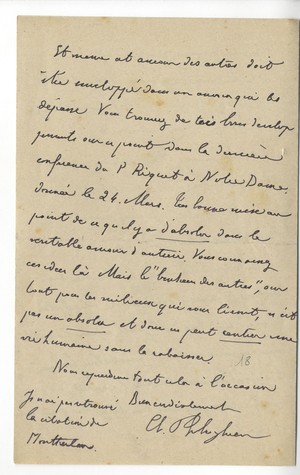 Et meme cet amour des autres doit
être enveloppé dans un amour qui les
dépasse Vous trouvez de très bons develop
pements sur ce point dans la dernière
conférence du P Riquet à Notre Dame.
donnée le 24. Mars. Très bonne mise au
point de ce qu'il y a d'absolu dans le
veritable amour d'autrui. Vous connaissez
ces idees là Mais le "bonheur des autres", sur
tout pas les milieux qui nous lisent, n'est
pas un absolu et donc ne peut centrer une
vie humaine sans la rabaisser. 18
Nous reparlerons tout cela à l'occasion
Je n'ai pas retrouvé Bien cordialement
la citation de
Montherlant.